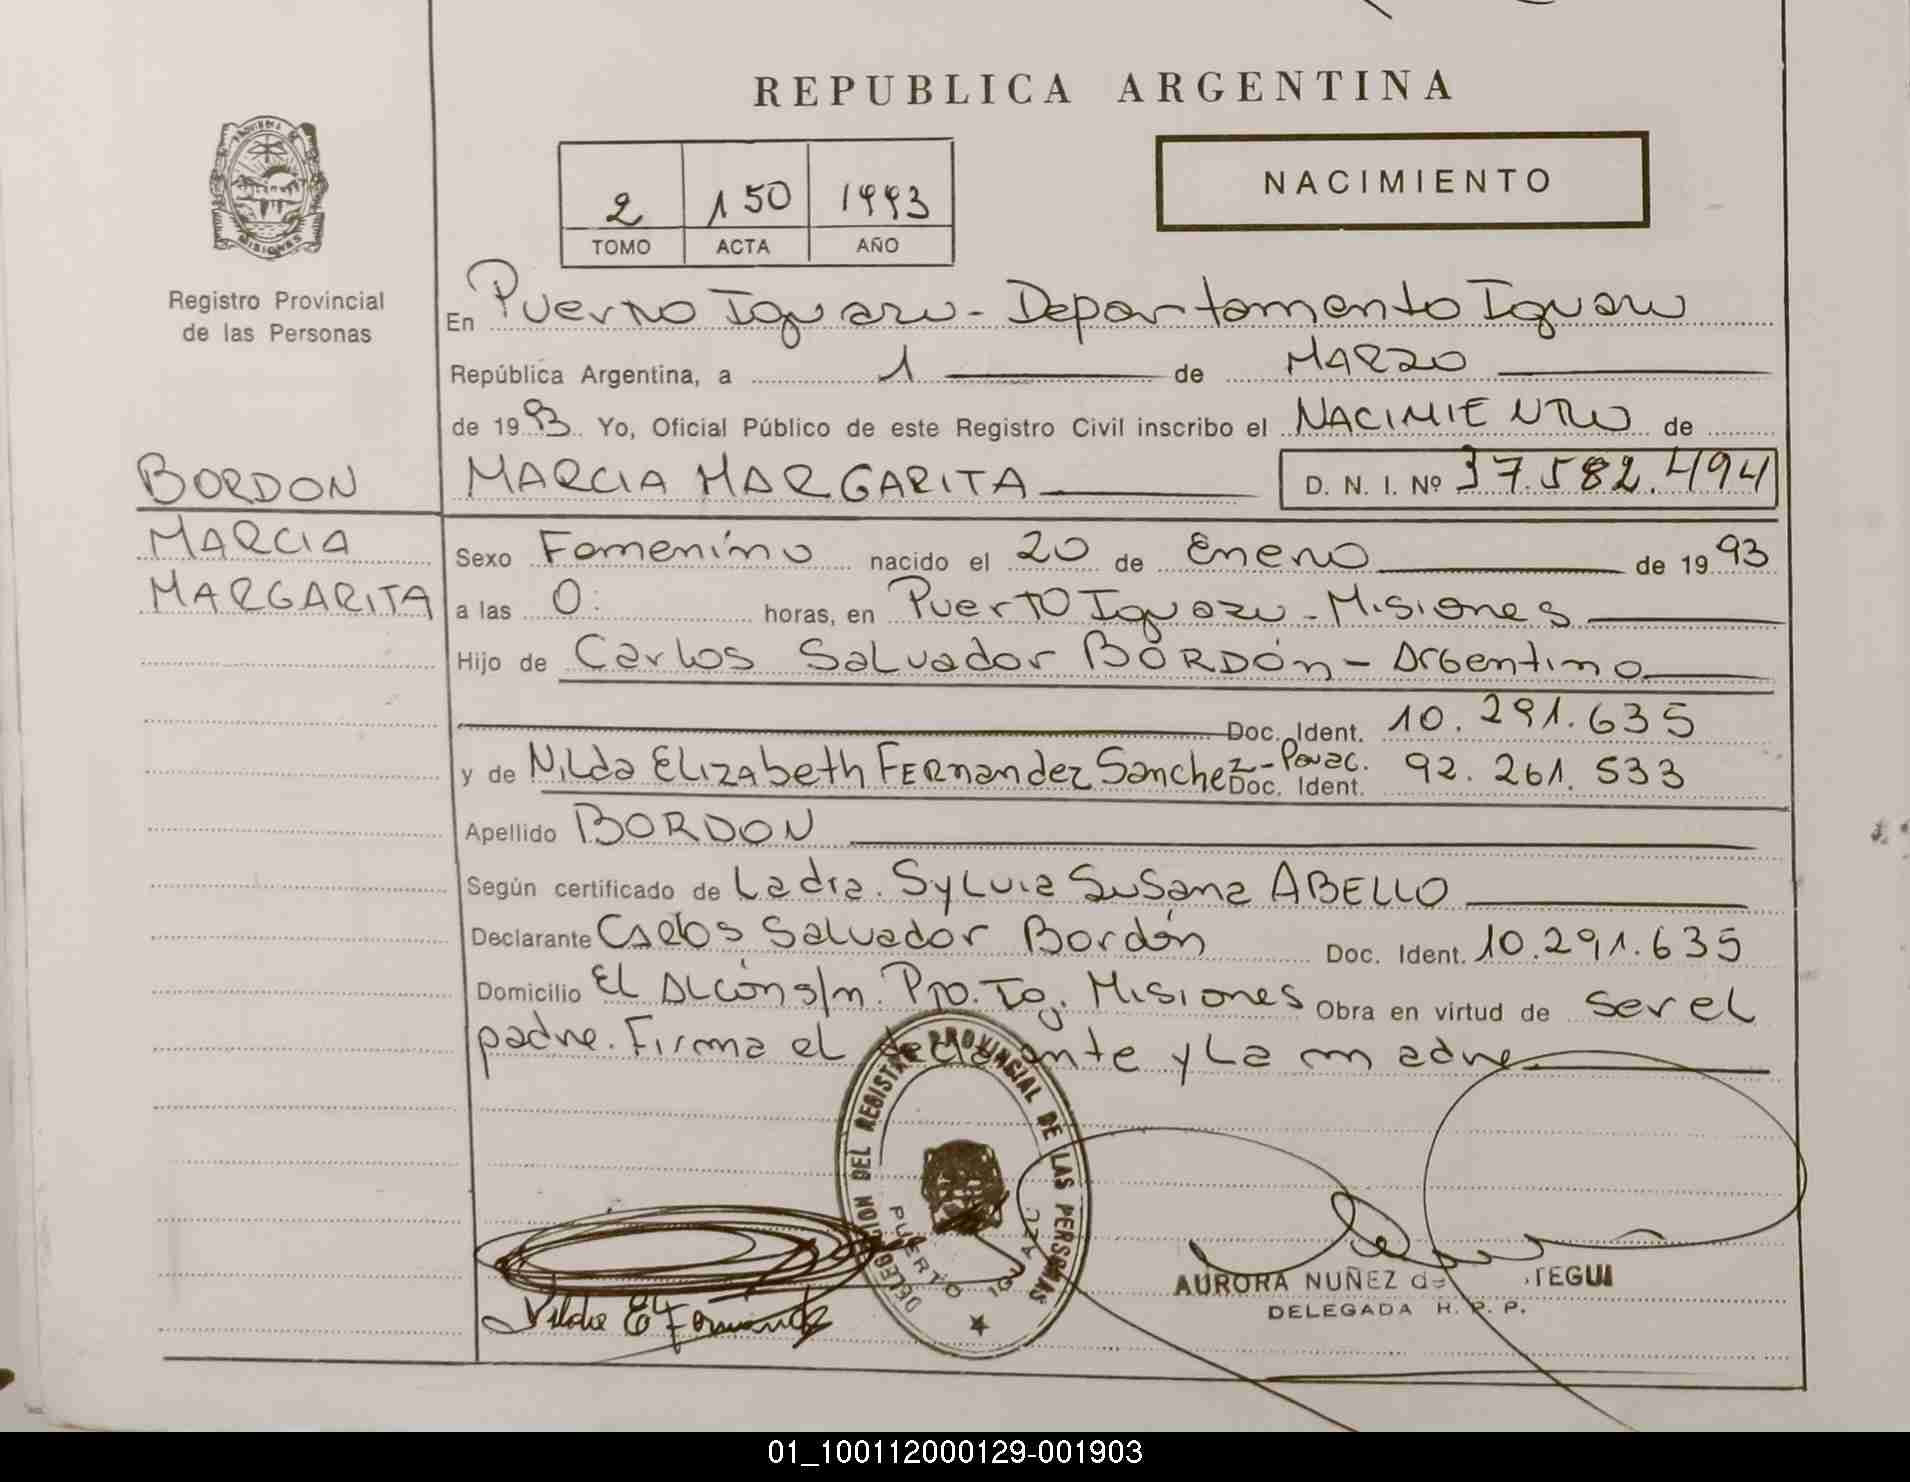 REPUBLICA ARGENTINA
NACIMIENTO
2 150 1993
TOMO ACTA AÑO
PROVINCIA DE
MISIONES
Registro Provincial
de las Personas
En Puerto Iguazu - Departamento Iguazu
República Argentina, a 1 de MARZO
de 1993. Yo, Oficial Público de este Registro Civil inscribo el NACIMIENTO de
BORDON
MARCIA
MARGARITA
MARCIA MARGARITA D. N. I. Nº 37.582.494
Sexo Femenino nacido el 20 de Enero de 1993
a las 0: horas, en Puerto Iguazu - Misiones
Hijo de Carlos Salvador BORDÓn - Argentino
Doc. Ident. 10.291.635
y de Nilda Elizabeth FERnandez Sanchez - Doc. Ident. 92.261.533
Apellido BORDON
Según certificado de La dra. Sylvia Susana ABELLO
Declarante Carlos Salvador Bordón Doc. Ident. 10.291.635
Domicilio El ALcón s/n. Pto. Ig. Misiones Obra en virtud de ser el
padre. Firma el declarante y La madre
DELEGACION DEL REGISTRO PROVINCIAL DE LAS PERSONAS
PUERTO IGUAZU
Nilda E Fernandez
AURORA NUÑEZ de TEGUI
DELEGADA R. P. P.
01_100112000129-001903